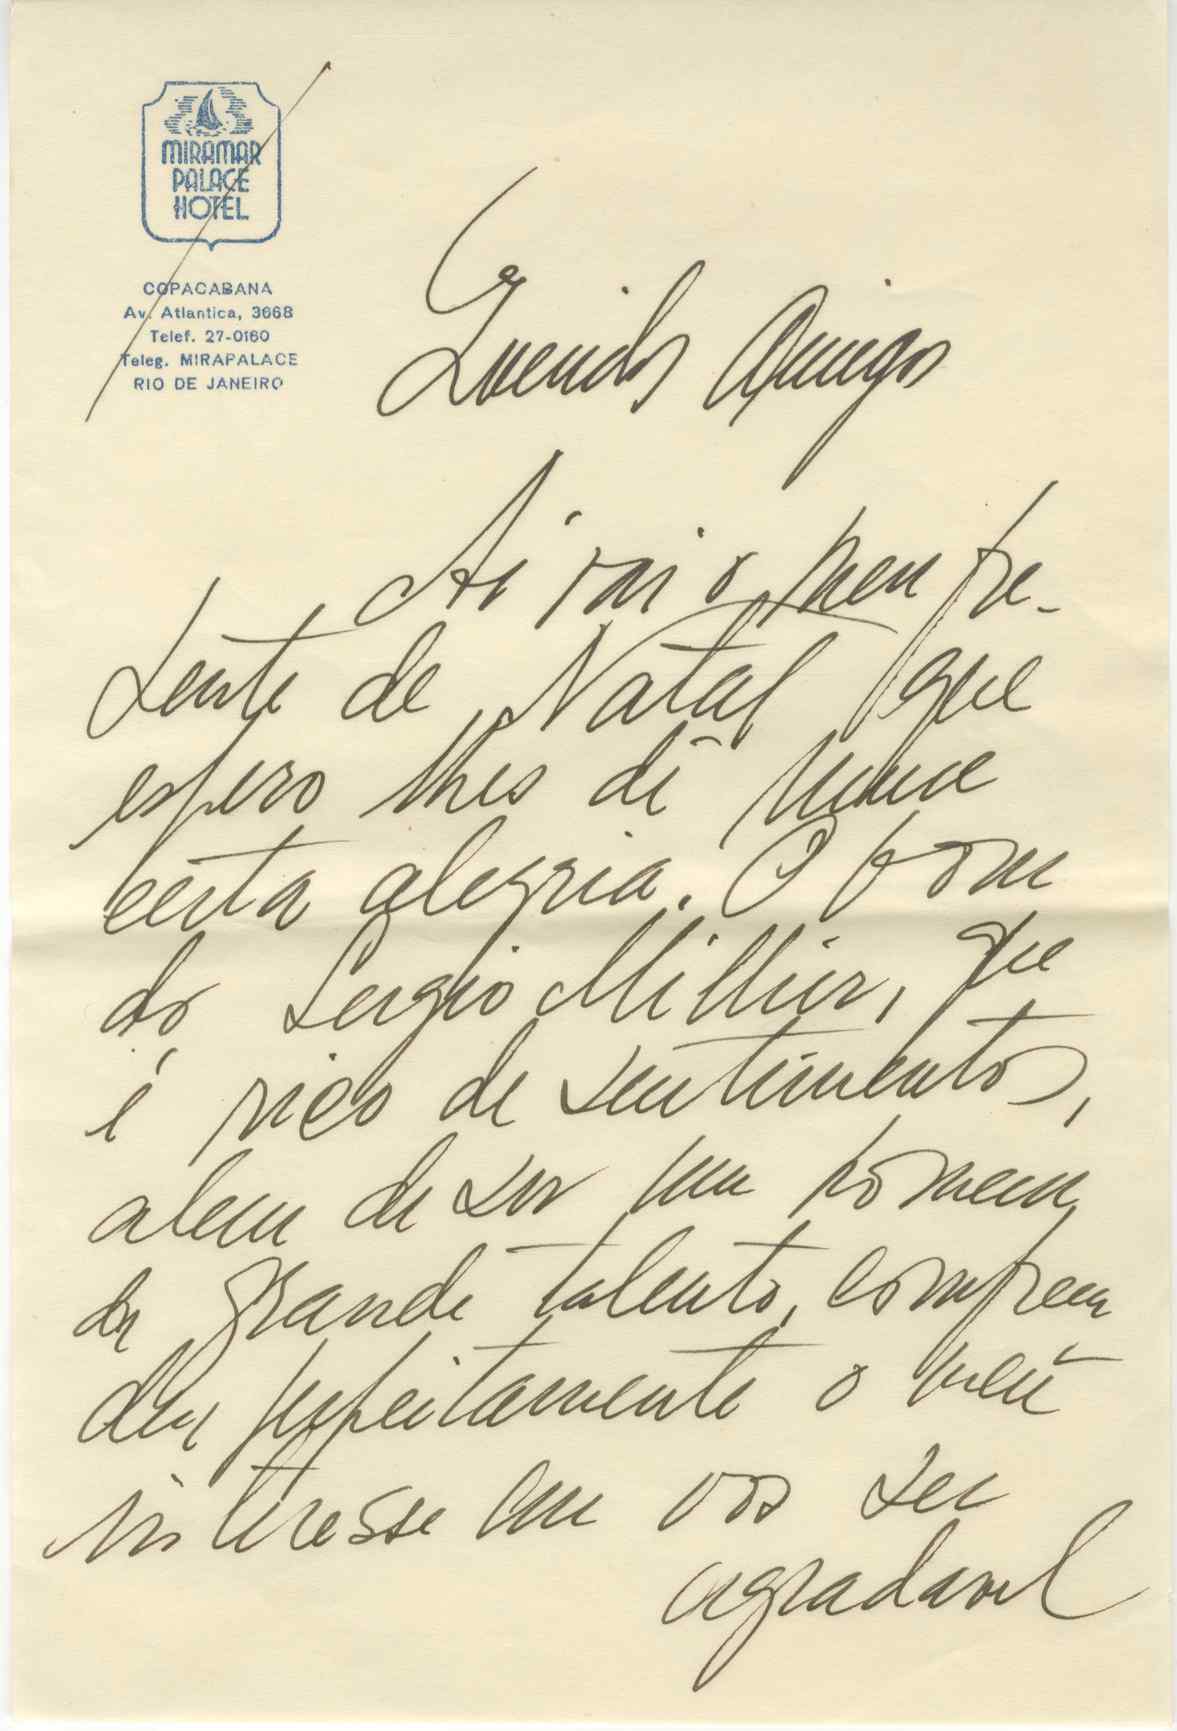 MIRAMAR
PALACE
HOTEL
COPACABANA
Av. Atlantica, 3668
Telef. 27-0160
Teleg. MIRAPALACE
RIO DE JANEIRO
Queridos Amigos
Ai vai o meu pre-
sente de Natal que
espero lhes dê uma
certa alegria. O bom
do Sergio Milliet, que
é rico de sentimentos,
alem de ser um homem
de grande talento, compreen
deu perfeitamente o meu
interesse em vos ser
agradavel